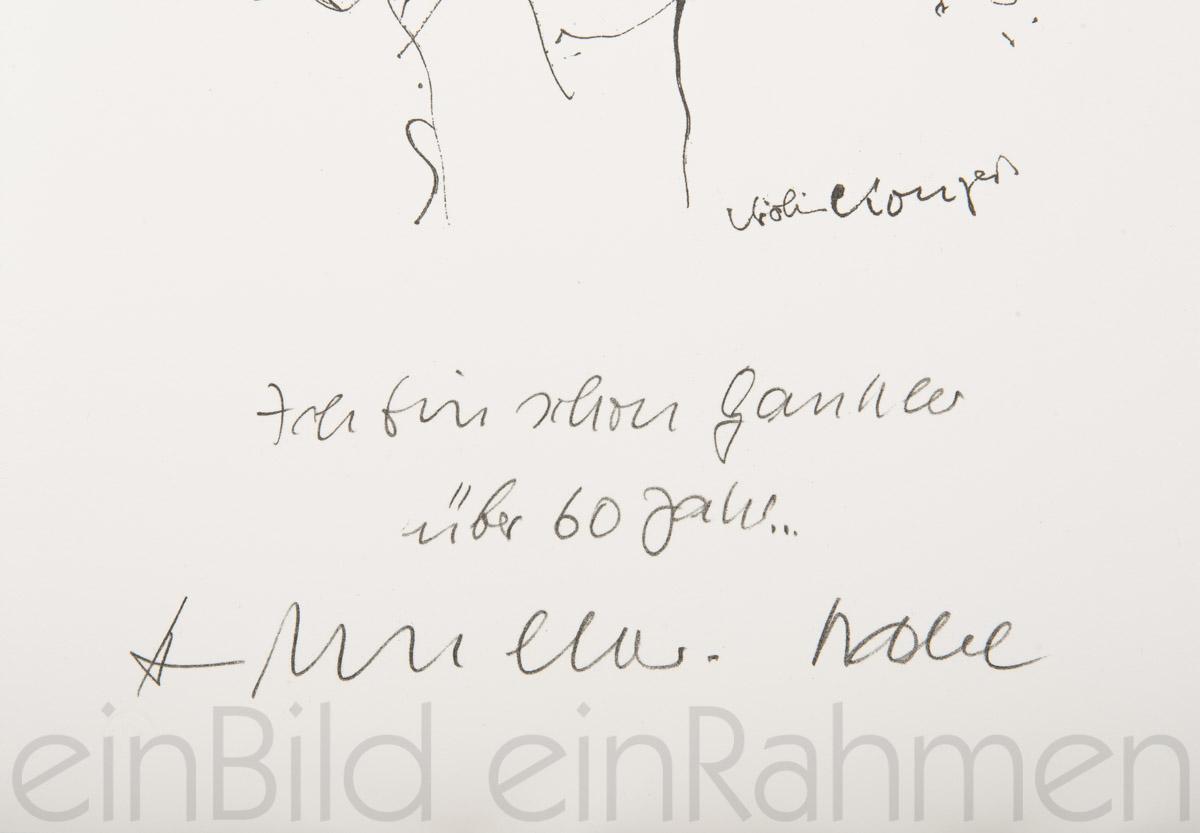 Violin Konzert
Ich bin schon Gaukler
über 60 Jahr...
A. Mueller. 
einBild einRahmen